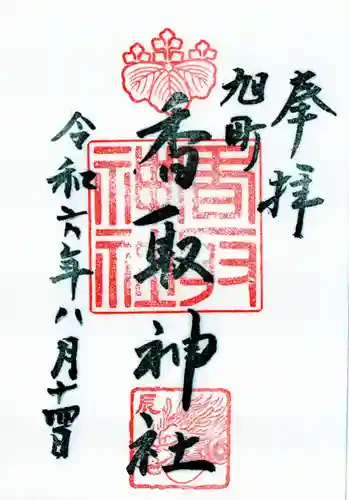 奉拝
旭町
香取神社
香取神社
辰
令和六年八月十四日